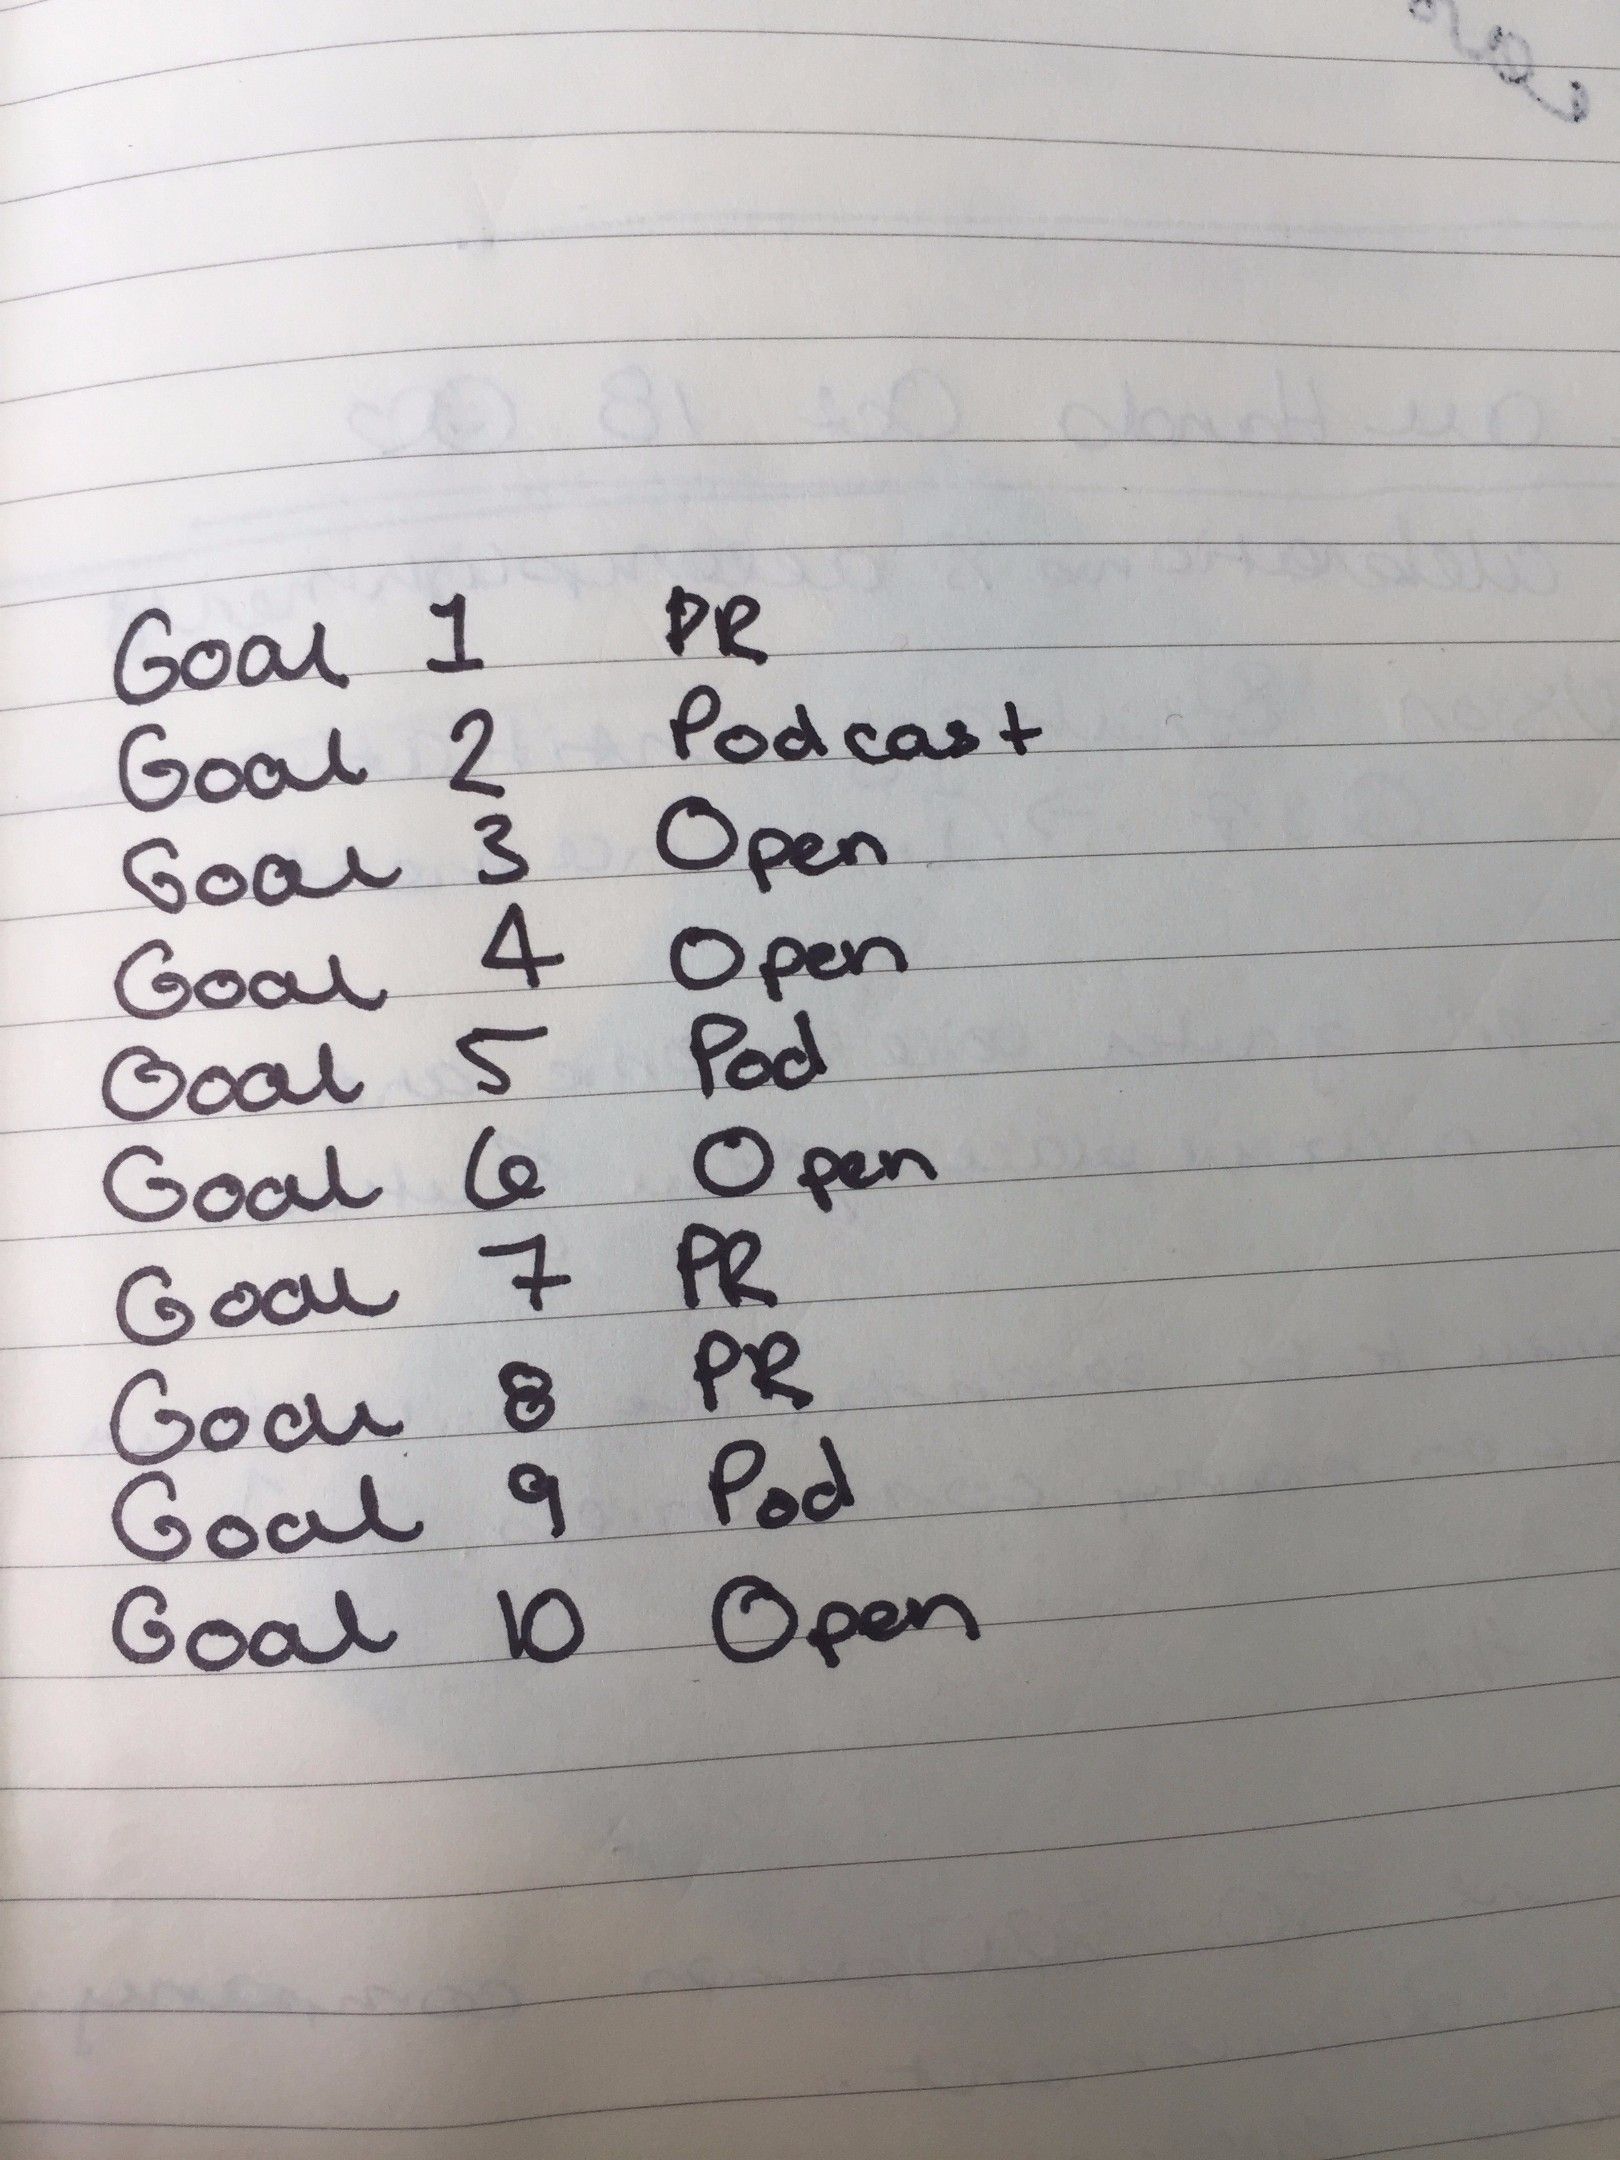 Goal 1 PR
Goal 2 Podcast
Goal 3 Open
Goal 4 Open
Goal 5 Pod
Goal 6 Open
Goal 7 PR
Goal 8 PR
Goal 9 Pod
Goal 10 Open